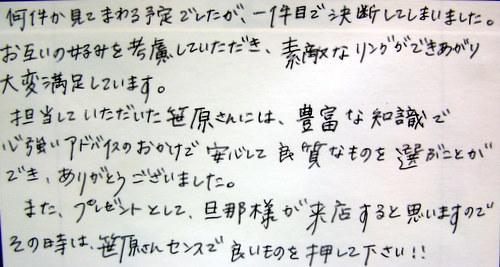 何件か見てまわる予定でしたが、一件目で決断してしまいました。
お互いの好みを考慮していただき、素敵なリングができあがり
大変満足しています。
担当していただいた笹原さんには、豊富な知識で
心強いアドバイスのおかげで安心して良質なものを選ぶことが
でき、ありがとうございました。
また、プレゼントとして、旦那様が来店すると思いますので
その時は、笹原さんセンスで良いものを押して下さい!!